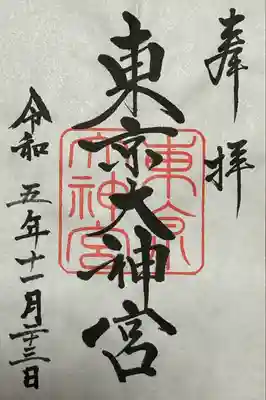 奉拝
東京大神宮
東京大神宮
令和五年十一月二十三日